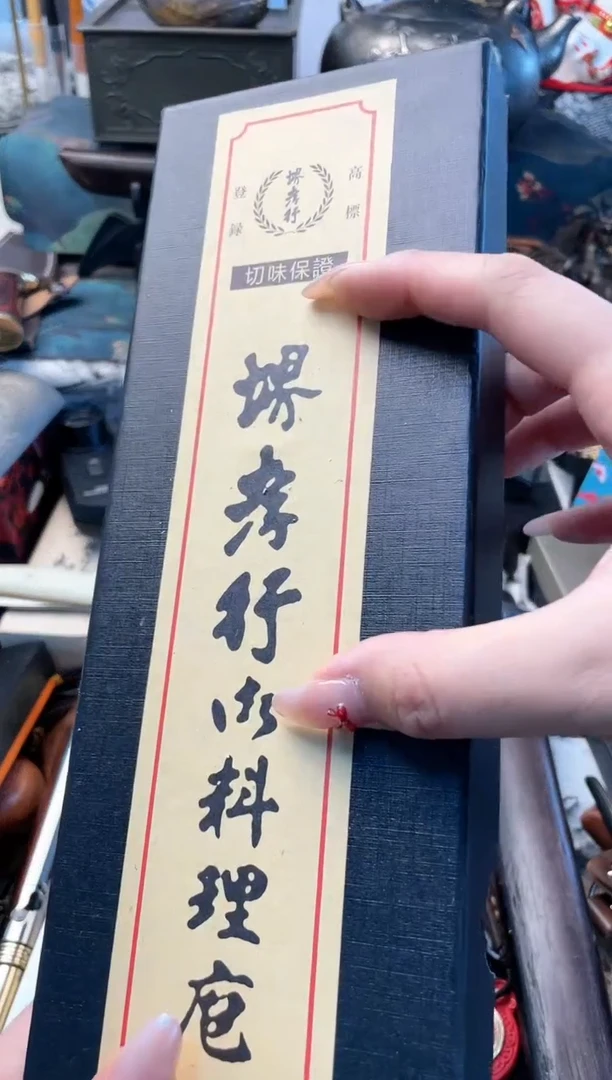 高標
堺孝行
登録
切味保證
堺孝行御料理庖